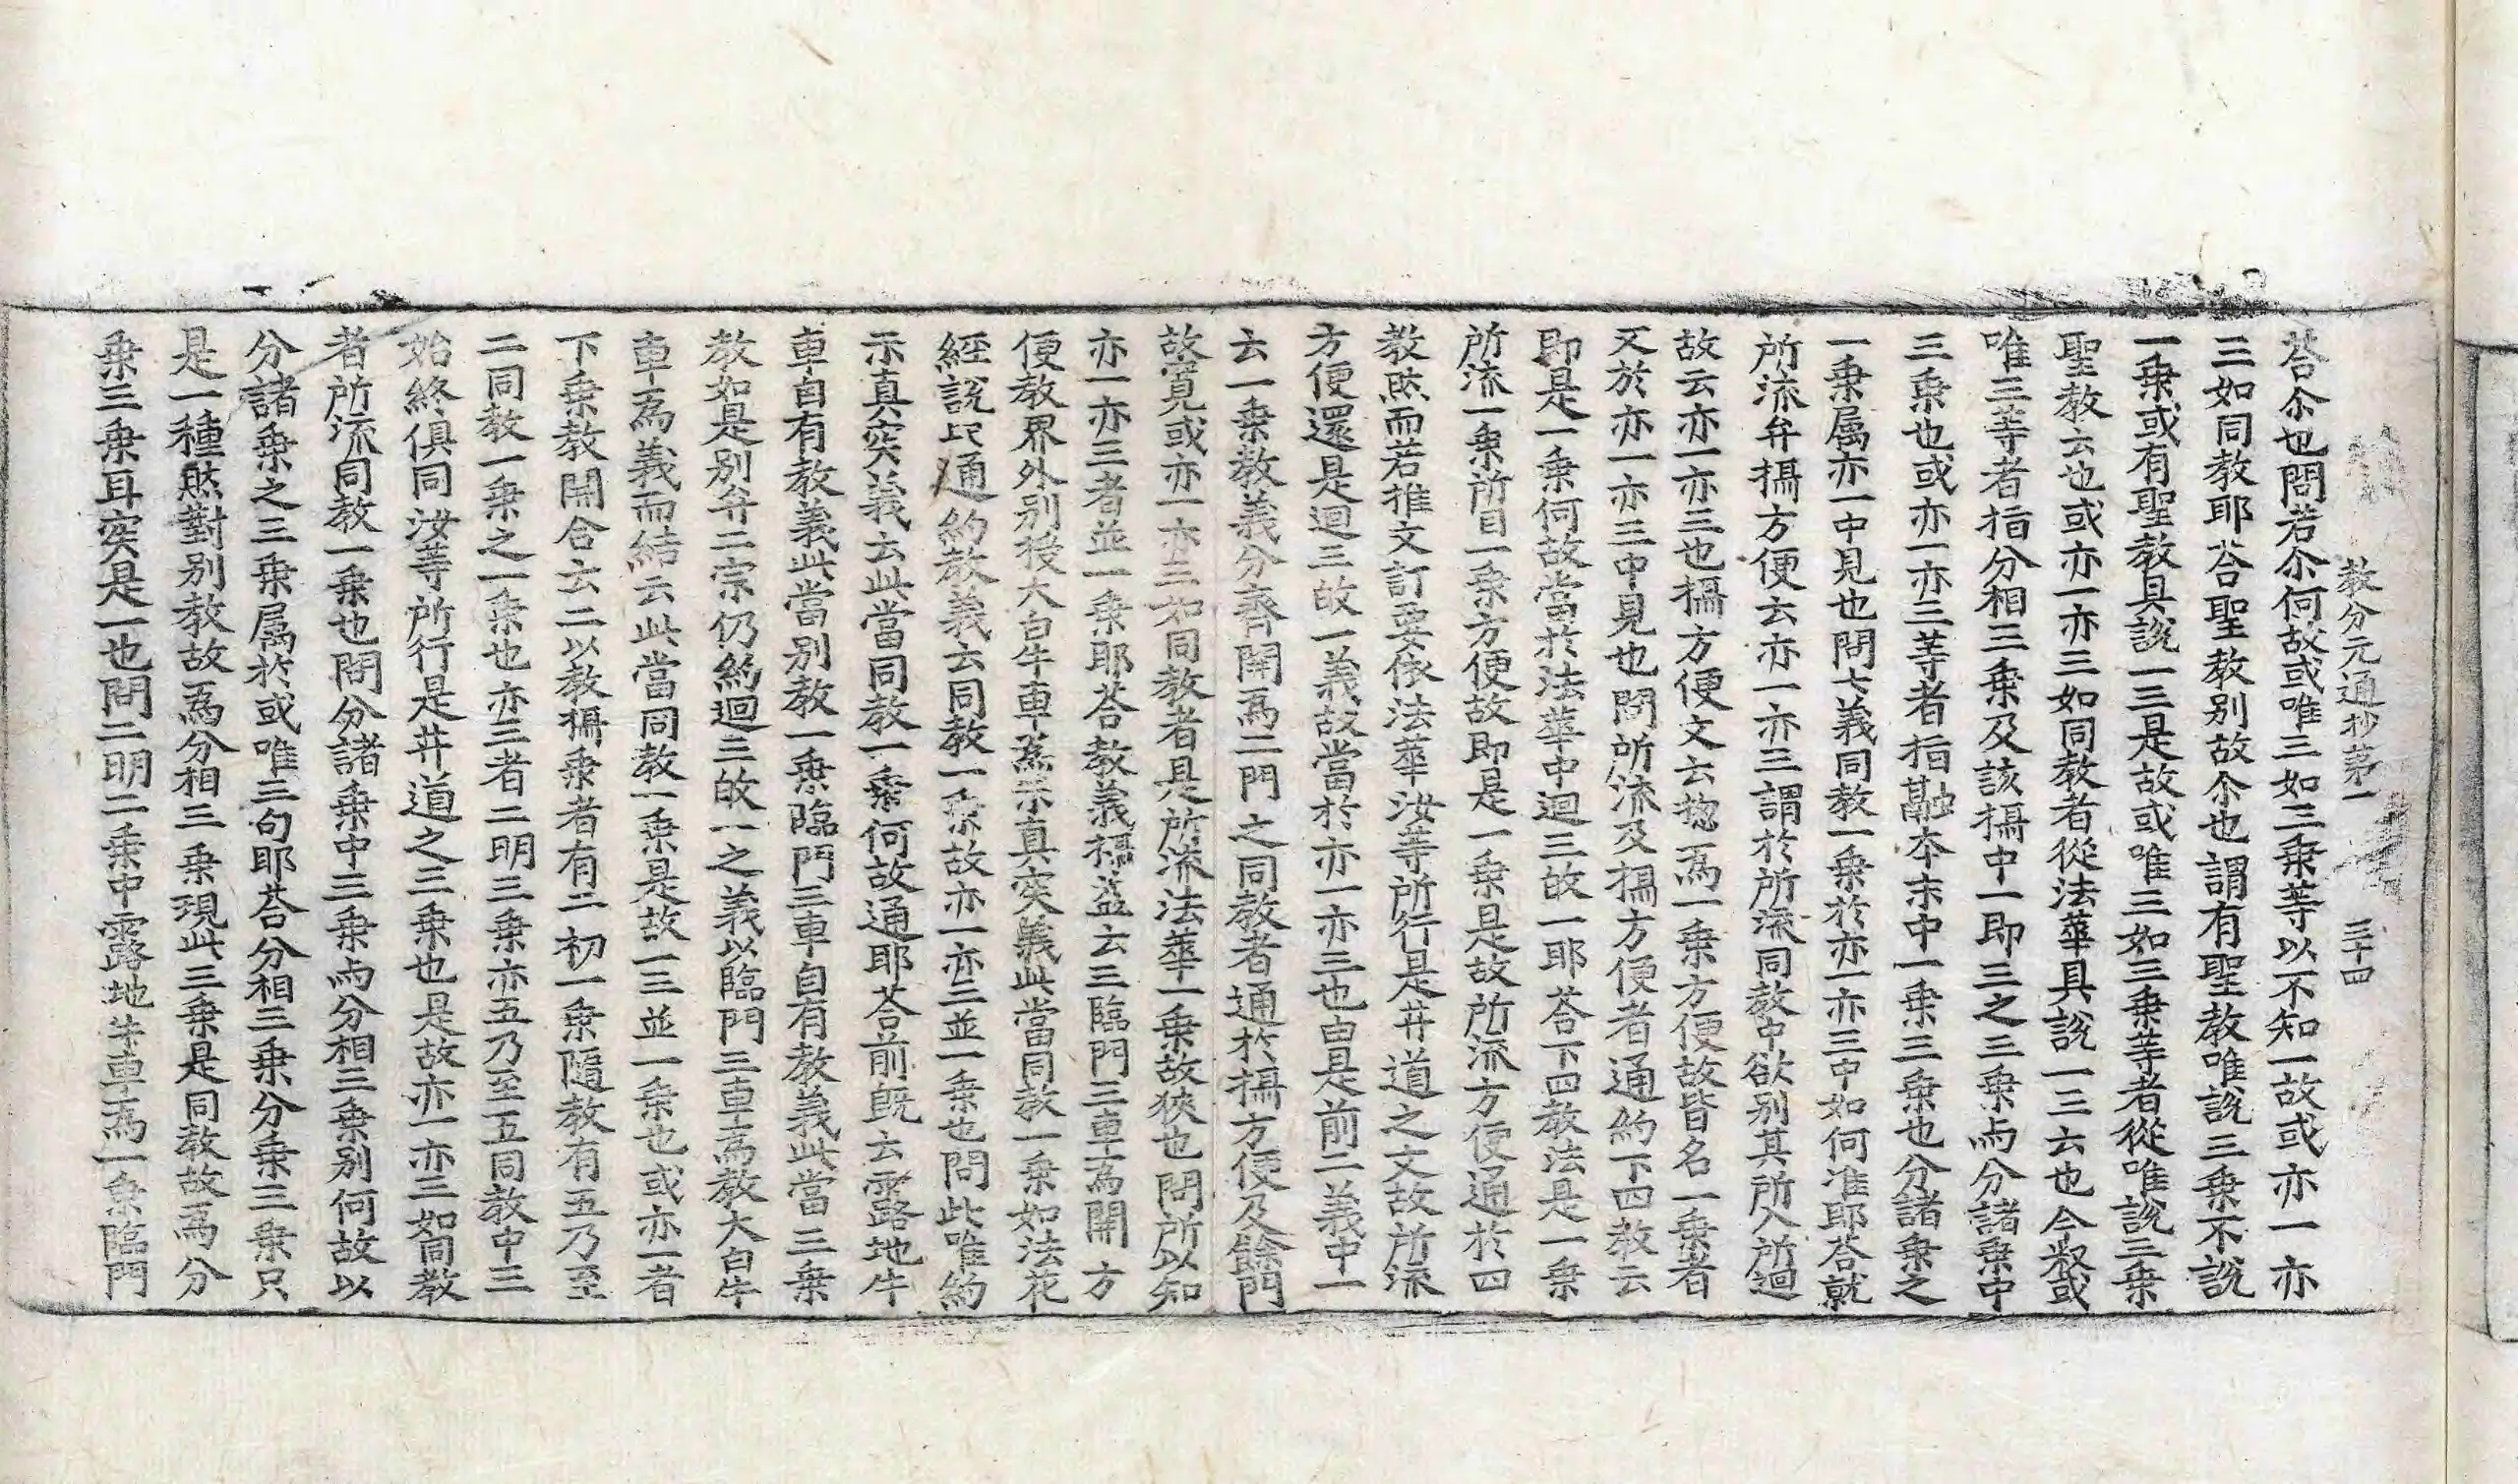 教分元通抄苐一　三十四
荅尒也問若尒何故或唯三如三乗等以不知一故或亦一亦
三如同教耶荅聖教別故尒也謂有聖教唯說三乗不說
一乗或有聖教具說一三是故或唯三如三乗等者從唯說三乗
聖教云也或亦一亦三如同教者從法華具說一三云也今叙或
唯三等者指分相三乗及該攝中一即三之三乗而分諸乗中
三乗也或亦一亦三等者指融本末中一乗三乗也分諸乗之
一乗属亦一中見也問七義同教一乗於亦一亦三中如何准耶荅就
所流弁攝方便云亦一亦三謂於所流同教中欲別其所入所迴
故云亦一亦三也攝方便文云捴爲一乗方便故皆名一乗者
又於亦一亦三中見也問所流及攝方便者通約下四教云
即是一乗何故當於法華中迴三故一耶荅下四教法是一乗
所流一乗所目一乗方便故即是一乗是故所流方便通於四
教然而若推文訂要依法華汝等所行是井道之文故所流
方便還是迴三故一義故當於亦一亦三也由是前二義中一
云一乗教義分齊開爲二門之同教者通於攝方便及餘門
故寬或亦一亦三如同教者是所流法華一乗故狹也問所以知
亦一亦三者並一乗耶荅教義攝益云三臨門三車爲開方
便教界外別授大白牛車爲示真実義此當同教一乗如法花
經說此通約教義云同教一乗故亦一亦三並一乗也問此唯約
示真実義云此當同教一乗何故通耶荅前旣云露地牛
車自有教義此當別教一乗臨門三車自有教義此當三乗
教如是別弁二宗仍約迴三故一之義以臨門三車爲教大白牛
車爲義而結云此當同教一乗是故一三並一乗也或亦一者
下乗教開合云二以教攝乗者有二初一乗隨教有五乃至
二同教一乗之一乗也亦三者二明三乗亦五乃至五同教中三
始終俱同汝等所行是井道之三乗也是故亦一亦三如同教
者所流同教一乗也問分諸乗中三乗而分相三乗別何故以
分諸乗之三乗属於或唯三句耶荅分相三乗分乗三乗只
是一種然對別教故爲分相三乗現此三乗是同教故爲分
乗三乗耳実是一也問二明二乗中露地牛車爲一乗臨門